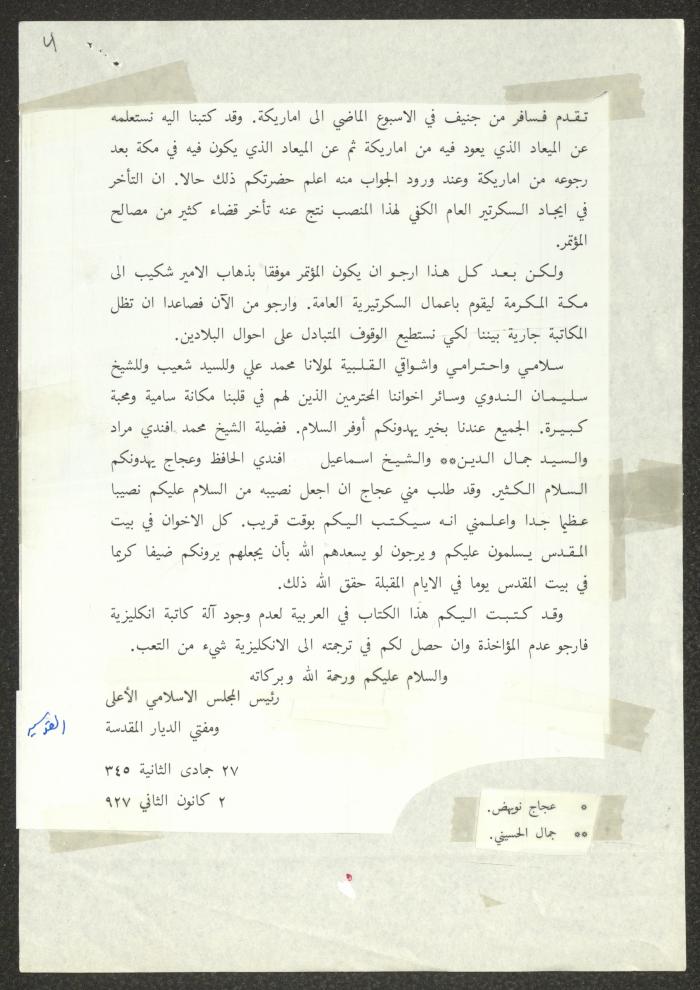 تقدم فسافر من جنيف في الاسبوع الماضي الى اماريكة. وقد كتبنا اليه نستعلمه
عن الميعاد الذي يعود فيه من اماريكة ثم عن الميعاد الذي يكون فيه في مكة بعد
رجوعه من اماريكة وعند ورود الجواب منه اعلم حضرتكم ذلك حالا. ان التأخر
في ايجاد السكرتير العام الكفي لهذا المنصب نتج عنه تأخر قضاء كثير من مصالح
المؤتمر.
ولكن بعد كل هذا ارجو ان يكون المؤتمر موفقا بذهاب الامير شكيب الى
مكة المكرمة ليقوم باعمال السكرتيرية العامة. وارجو من الآن فصاعدا ان تظل
المكاتبة جارية بيننا لكي نستطيع الوقوف المتبادل على احوال البلادين.
سلامي واحترامي واشواقي القلبية لمولانا محمد علي وللسيد شعيب وللشيخ
سليمان الندوي وسائر اخواننا المحترمين الذين لهم في قلبنا مكانة سامية ومحبة
كبيرة. الجميع عندنا بخير يهدونكم أوفر السلام. فضيلة الشيخ محمد افندي مراد
والسيد جمال الدين** والشيخ اسماعيل افندي الحافظ وعجاج يهدونكم
السلام الكثير. وقد طلب مني عجاج ان اجعل نصيبه من السلام عليكم نصيبا
عظيما جدا واعلمني انه سيكتب اليكم بوقت قريب. كل الاخوان في بيت
المقدس يسلمون عليكم ويرجون لو يسعدهم الله بأن يجعلهم يرونكم ضيفا كريما
في بيت المقدس يوما في الايام المقبلة حقق الله ذلك.
وقد كتبت اليكم هذا الكتاب في العربية لعدم وجود آلة كاتبة انكليزية
فارجو عدم المؤاخذة وان حصل لكم في ترجمته الى الانكليزية شيء من التعب.
والسلام عليكم ورحمة الله وبركاته
رئيس المجلس الاسلامي الأعلى
ومفتي الديار المقدسة
٢٧ جمادى الثانية ٣٤٥
٢ كانون الثاني ٩٢٧
* عجاج نويهض.
** جمال الحسيني.